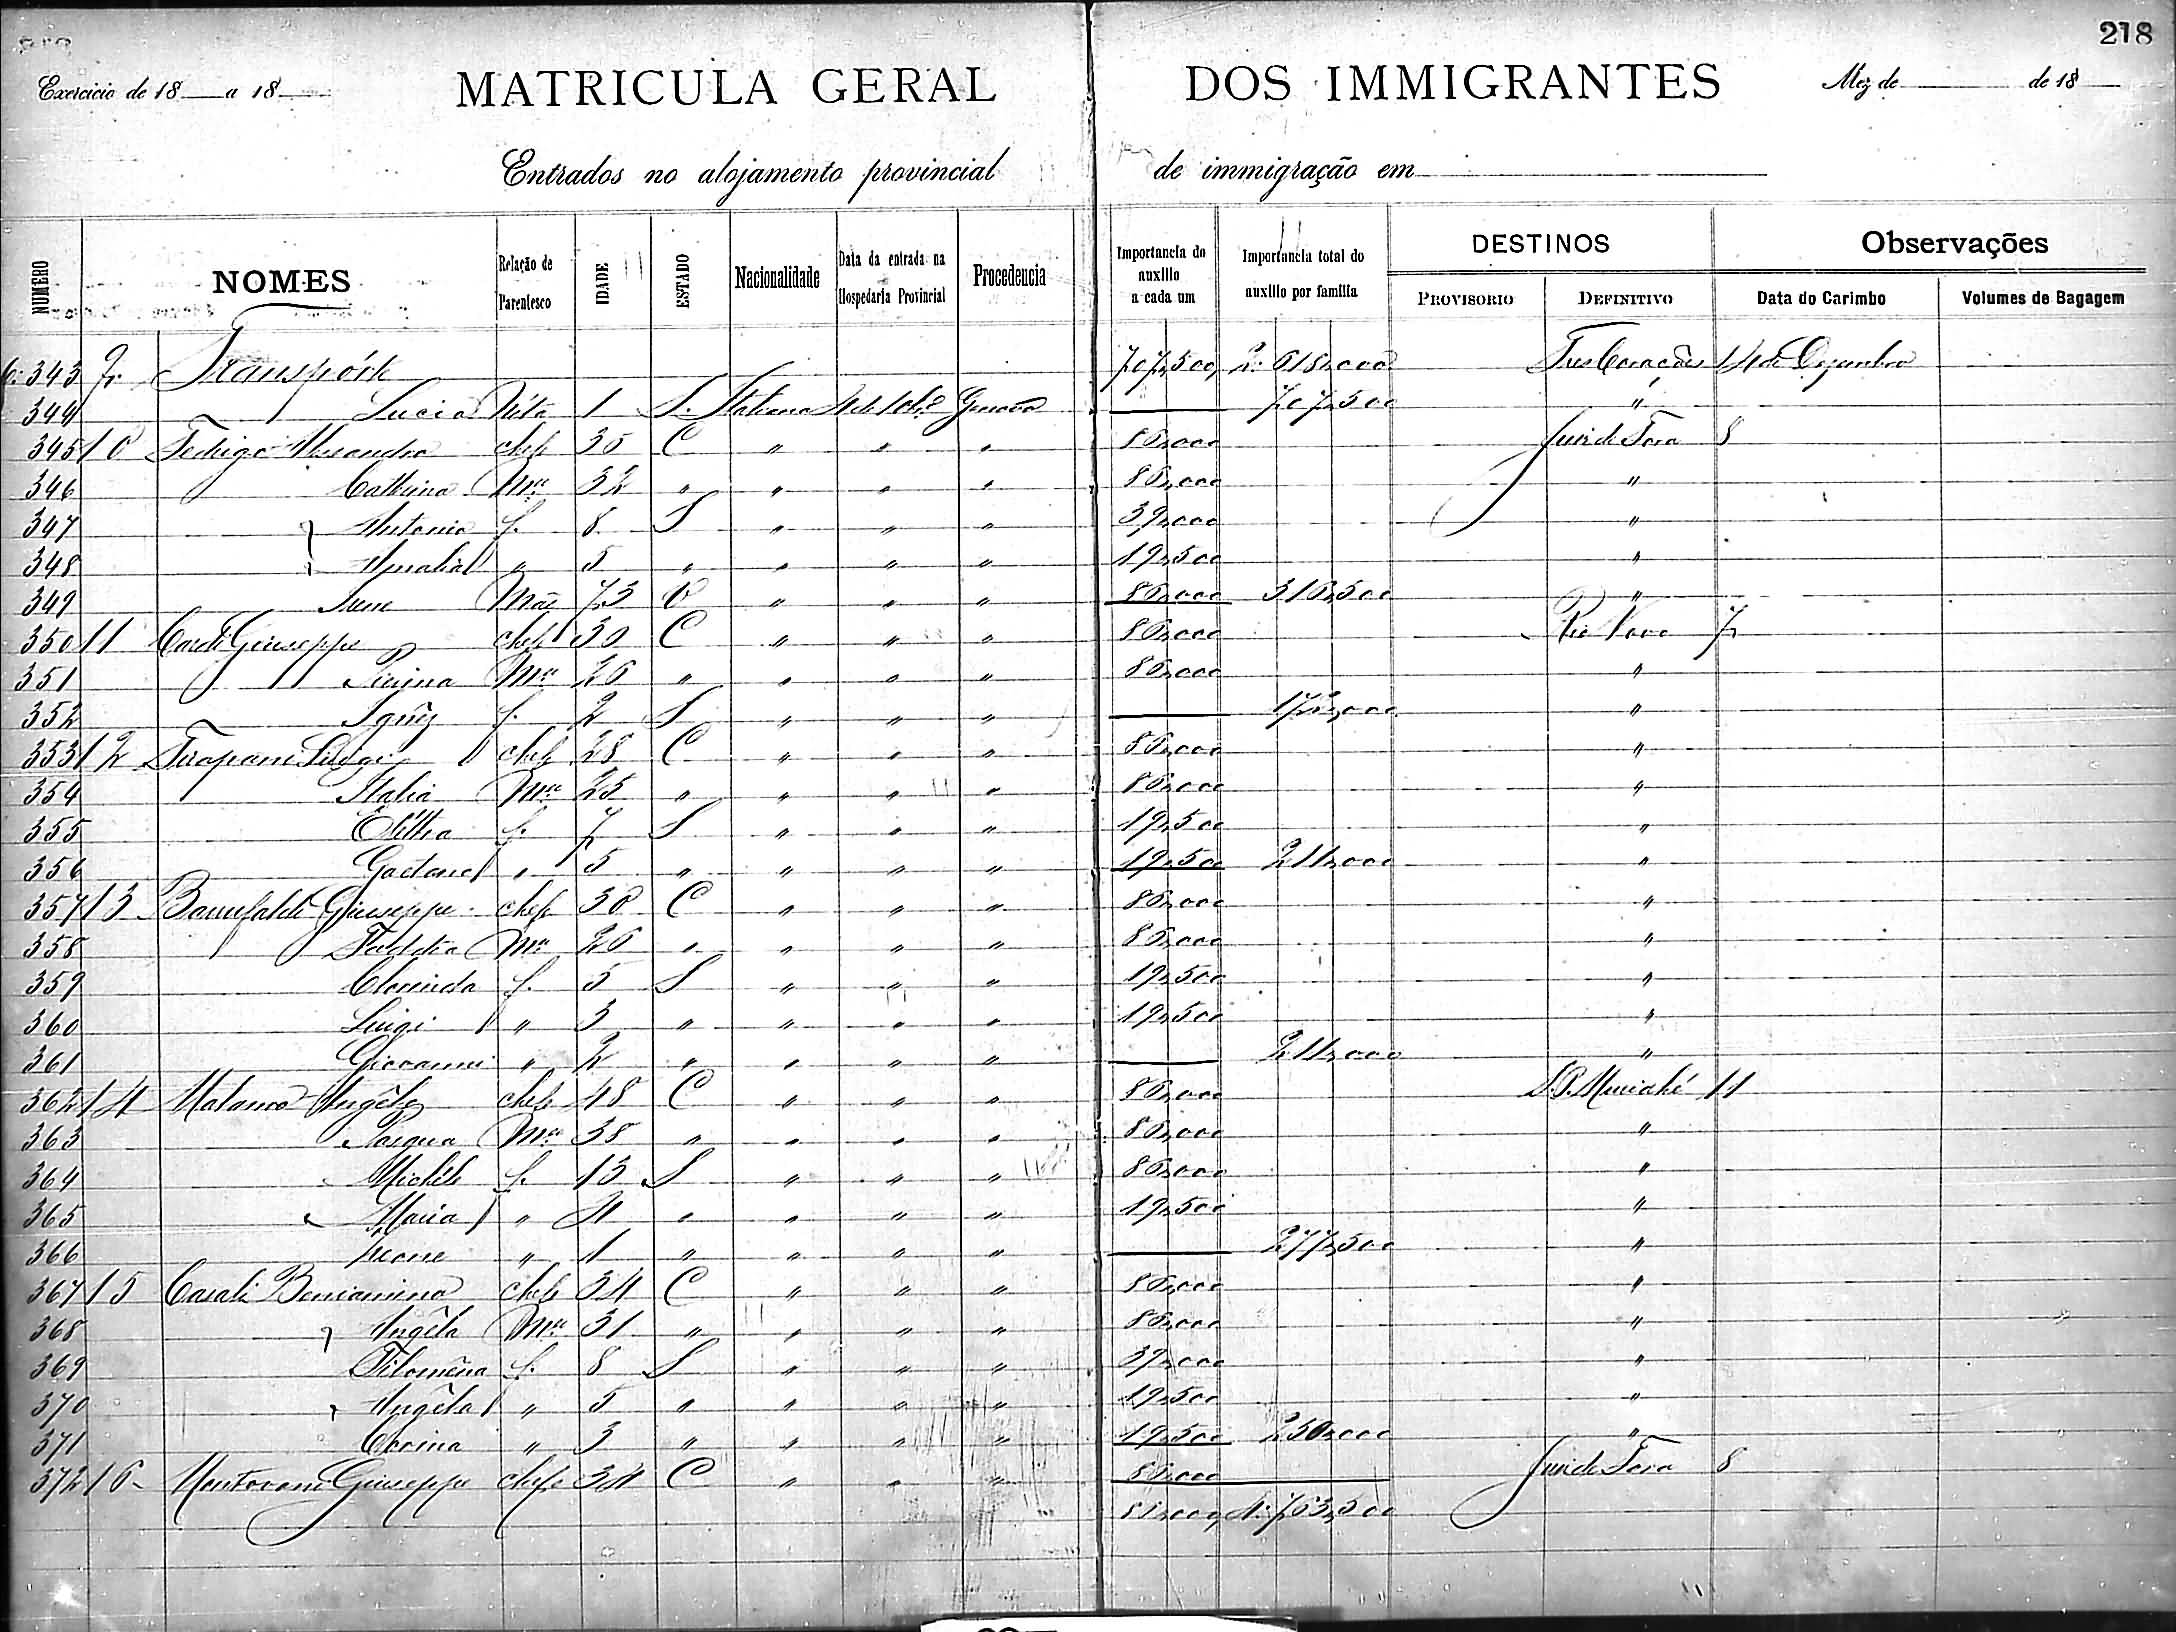 218
Exercicio de 18 a 18
MATRICULA GERAL DOS IMMIGRANTES
Mez de de 18
Entrados no alojamento provincial de immigração em
NUMERO NOMES Relação de Parentesco IDADE ESTADO Nacionalidade Data da entrada na Hospedaria Provincial Procedencia Importancia do auxilio a cada um Importancia total do auxilio por familia DESTINOS PROVISORIO DEFINITIVO Observações Data do Carimbo Volumes de Bagagem
343 Transpórte 707,500 2:618,000 Tres Corações 14 de Dezembro
344 Lucia Néta 1 S. Italiana Genova 707,500 "
345 10 chefe 35 C " " " 86,000 Juiz de Fora 8
346 Catterina Mer 32 " " " " 86,000 "
347 Antonio f. 8 S " " " 39,000 "
348 " 5 " " " " 19,500 "
349 Mãe 73 V " " " 86,000 316,500 "
350 11 Giuseppe chefe 30 C " " " 86,000 Rio Novo 7
351 Mer 26 " " " " 86,000 "
352 Ignêz f. 2 S " " " 172,000 "
353 12 Luigi chefe 28 C " " " 86,000 "
354 Italia Mer 25 " " " " 86,000 "
355 f. 7 S " " " 19,500 "
356 Gaetano " 5 " " " " 19,500 211,000 "
357 13 Giuseppe chefe 30 C " " " 86,000 "
358 Mer 26 " " " " 86,000 "
359 Clorinda f. 5 S " " " 19,500 "
360 Luigi " 3 " " " " 19,500 "
361 Giovanni " 2 " " " " 211,000 "
362 14 Angêlo chefe 48 C " " " 86,000 S. P. Muriahé 11
363 Pasqua Mer 38 " " " " 86,000 "
364 Michéle f. 13 S " " " 86,000 "
365 Maria " 4 " " " " 19,500 "
366 " 1 " " " " 277,500 "
367 15 Casali Beniamino chefe 34 C " " " 86,000 "
368 Angêla Mer 31 " " " " 86,000 "
369 Filomêna f. 8 S " " " 39,000 "
370 Angêla " 5 " " " " 19,500 "
371 Corina " 3 " " " " 19,500 250,000 "
372 16 Mantovani Giuseppe chefe 34 C " " " 86,000 Juiz de Fora 8
86,000 4:763,500